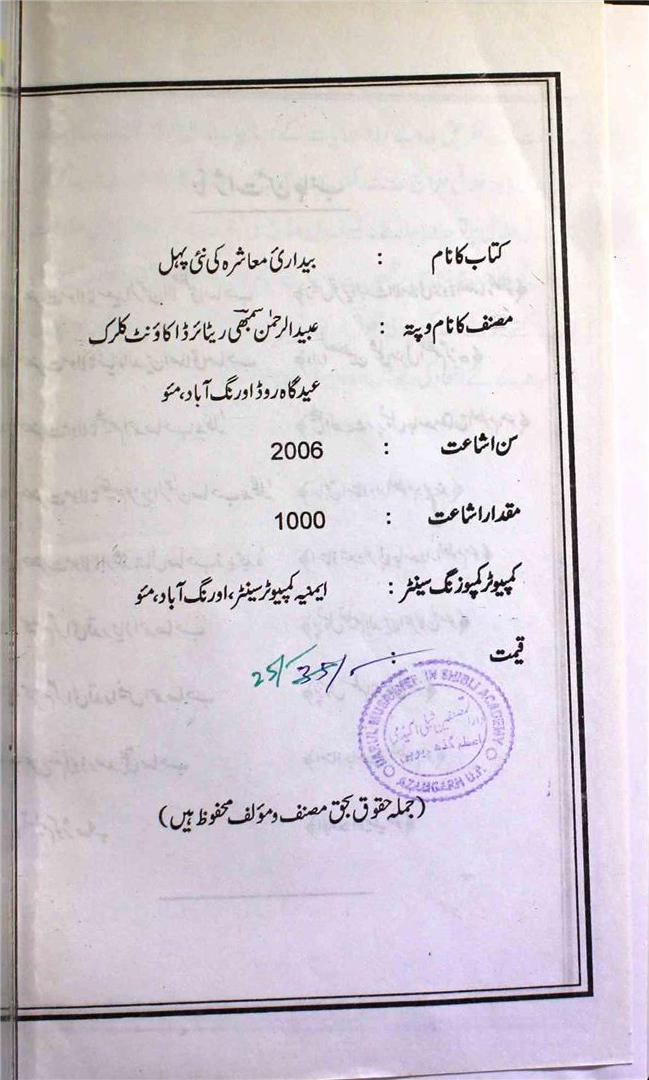 کتاب کا نام : بیداریٔ معاشرہ کی نئی پہل
مصنف کا نام و پتہ : عبید الرحمٰن سمبھی ریٹائرڈ اکاؤنٹ کلرک
عیدگاہ روڈ اورنگ آباد، مئو
سن اشاعت : 2006
مقدار اشاعت : 1000
کمپیوٹر کمپوزنگ سینٹر : ایمنیہ کمپیوٹر سینٹر، اورنگ آباد، مئو
قیمت : 25/ 35/
DARUL MUSANNEF IN SHIBLI ACADEMY
دارالمصنفین شبلی اکیڈمی
اعظم گڈھ
AZAMGARH U.P.
(جملہ حقوق بحق مصنف و مؤلف محفوظ ہیں)